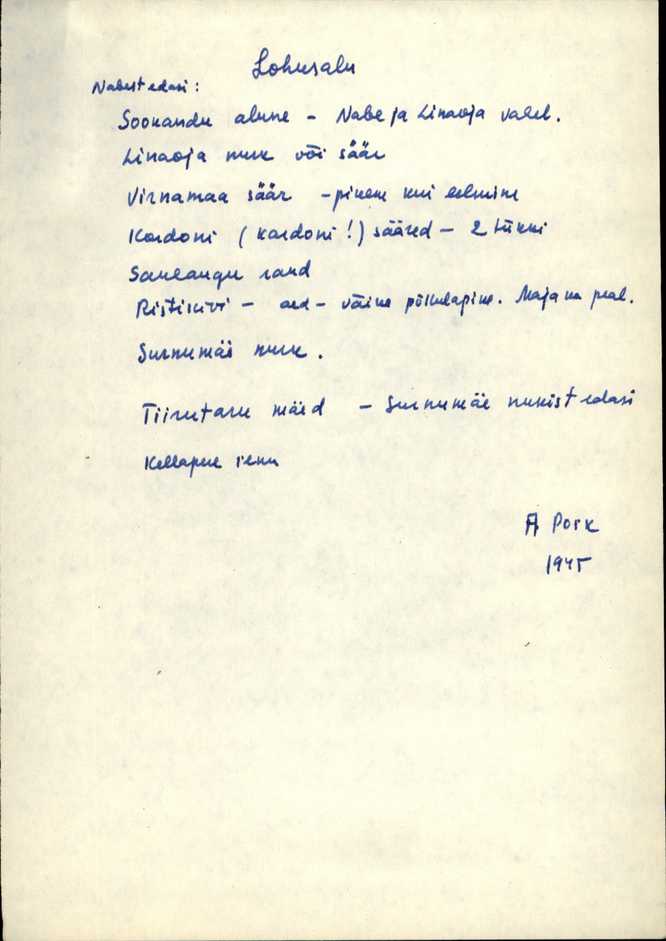 Lohusalu
Nabest edasi:
Sookandu alune - Nabe ja Linaoja vahel.
Linaoja nukk või säär
Virnamaa säär - pikem kui eelmine
Kordoni (kardoni!) sääred - 2 tükki
rand
Ristikivi - aed - väike põikulapine. Maja ka peal.
Surnumäe nukk.
Tiirutaru mäed - Surnumäe nukist edasi
Kellapere
A Pork
1945